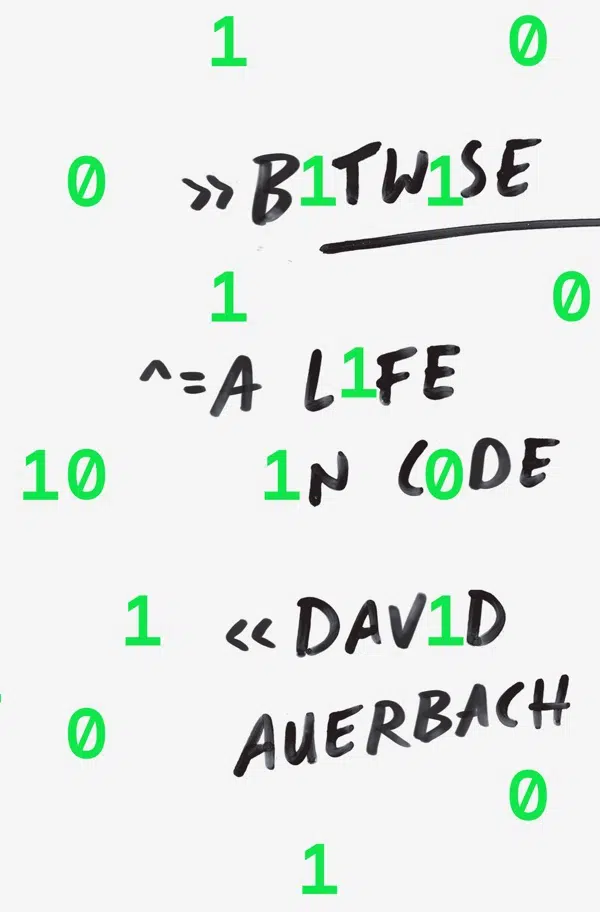 1 0
0 »B1TW1SE
1 0
^=A L1FE
10 1N C0DE
1 «DAV1D
AUERBACH
0
0
1